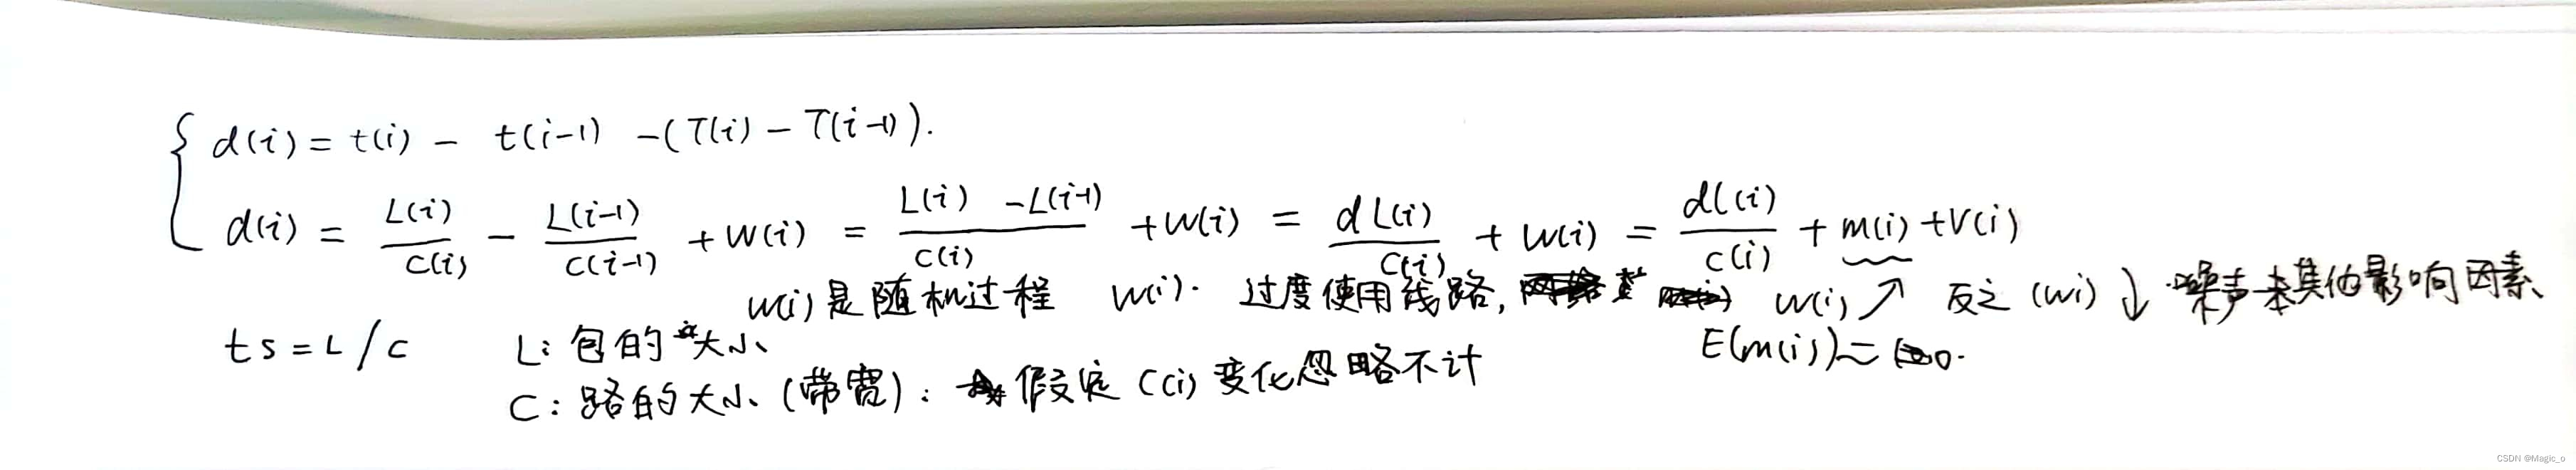 d(i) = t(i) - t(i-1) - (T(i) - T(i-1)).
d(i) = L(i)/C(i) - L(i-1)/C(i-1) + W(i) = L(i) - L(i-1)/C(i) + W(i) = dL(i)/C(i) + W(i) = dL(i)/C(i) + m(i) + V(i)
W(i)是随机过程 W(i). 过度使用线路, W(i)↗ 反之(Wi)↓ 噪声 其他影响因素
ts = L/C L: 包的大小 E(m(i)) ≈ 0.
C: 路的大小(带宽): 假定C(i)变化忽略不计
CSDN @Magic_o